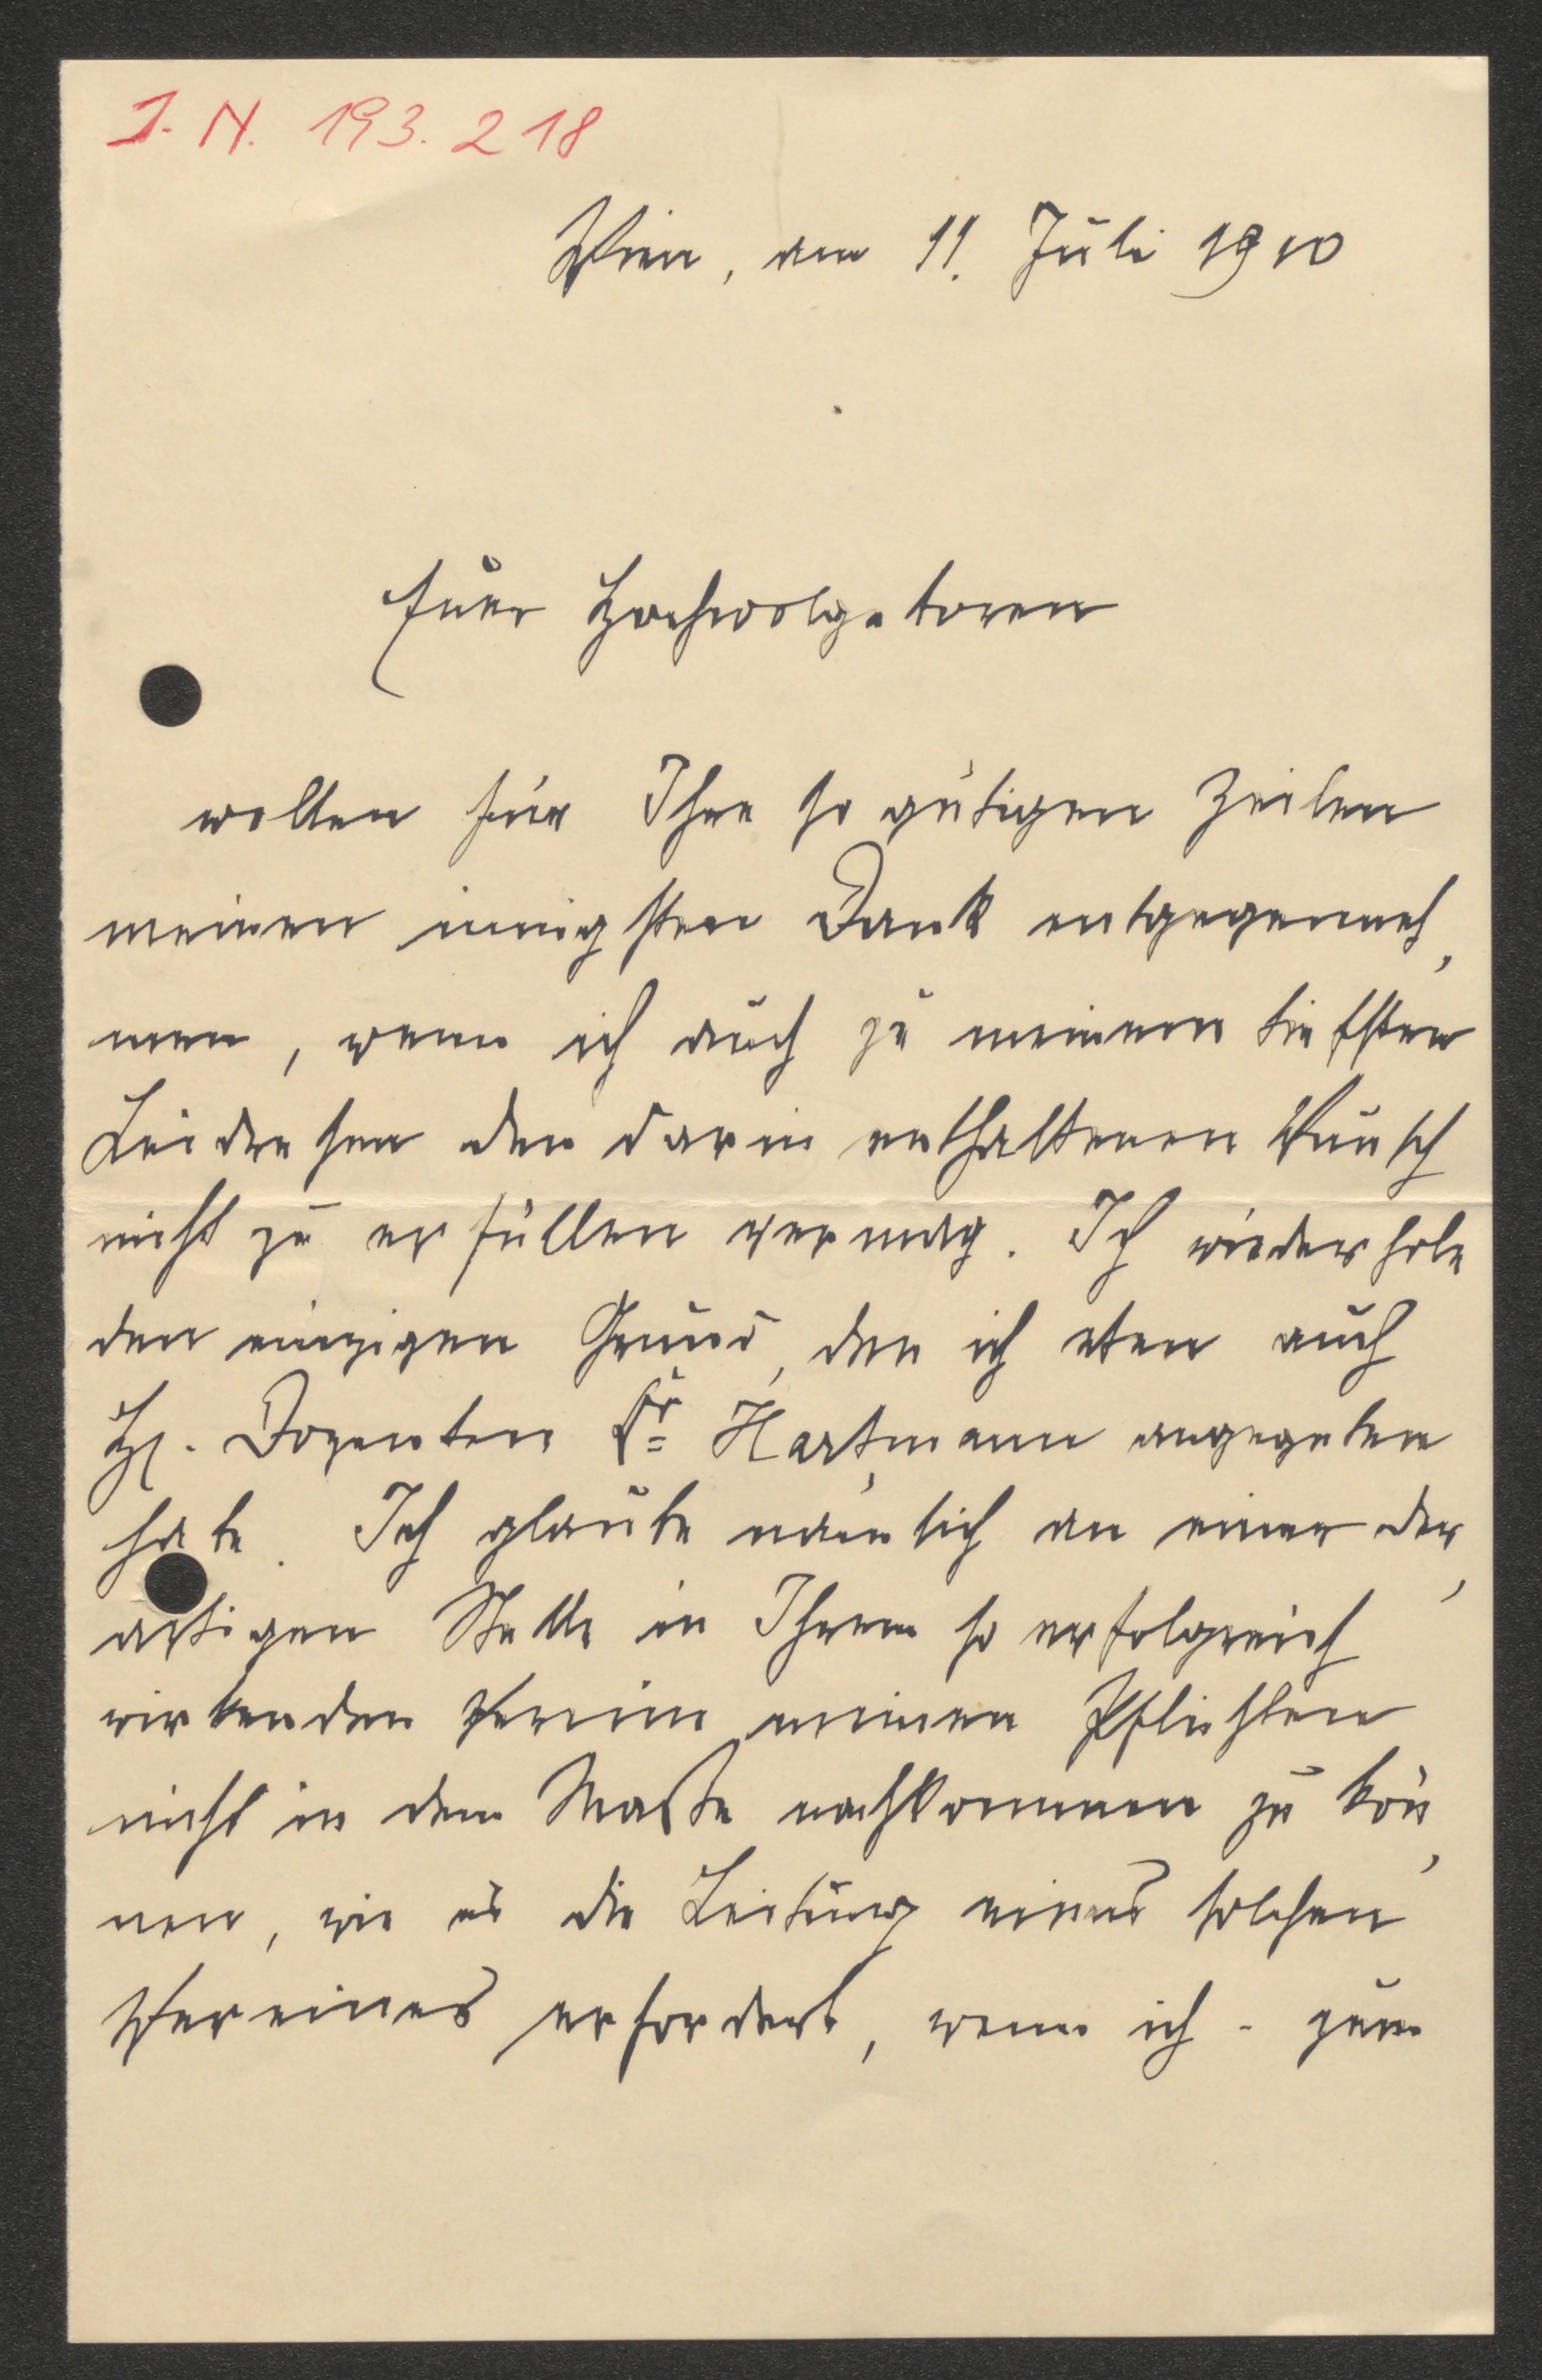 I. N. 193.218
Wien, am 11. Juli 1910
Euer Hochwolgeboren
wollen für Ihre so gütigen Zeilen
meinen innigsten Dank entgegenneh,
men, wenn ich auch zu meinem tiefsten
Leidwesen den darin enthaltenen Wunsch
nicht zu erfüllen vermag. Ich wiederhole
den einzigen Grund, den ich eben auch
Hr. Dozenten Dr. Hartmann angegeben
habe. Ich glaube nämlich an einer der,
artigen Stelle in Ihrem so erfolgreich
wirkenden Verein meinen Pflichten
nicht in dem Maße nachkommen zu kön,
nen, wie es die Leitung eines solchen
Vereines erfordert, wenn ich - zum